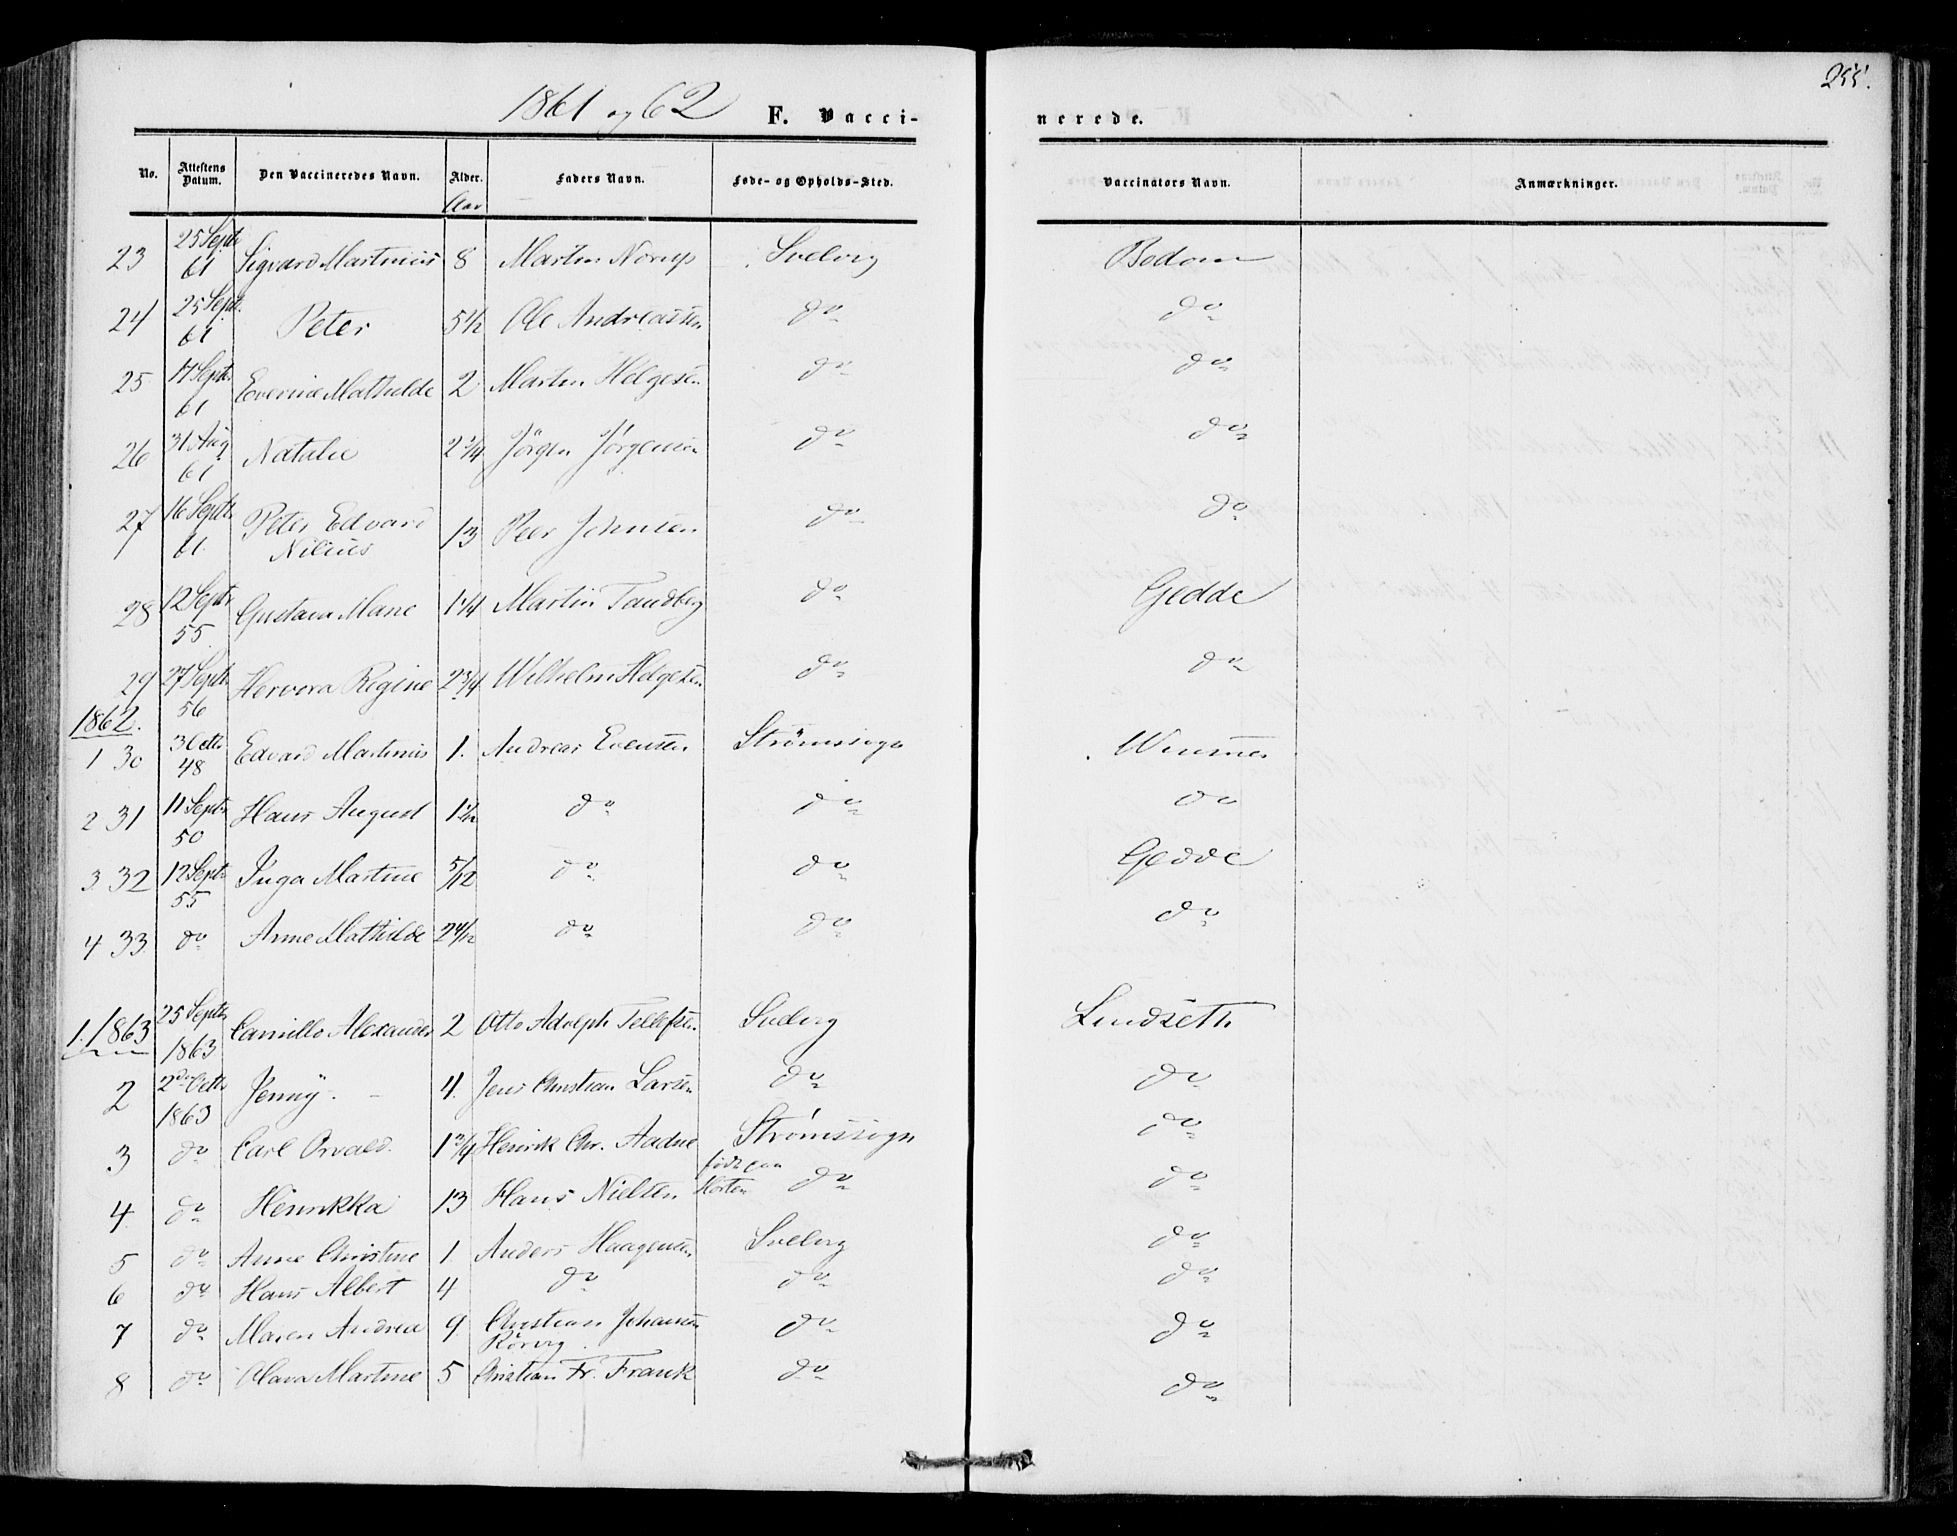 255.
1861 og 62 F. Vacci-nerede.
No. Attestens Datum. Den Vaccineredes Navn. Alder. Faders Navn. Føde- og Opholds-Sted. Vaccinators Navn. Anmærkninger.
Aar
23 25 Septr 61 Sigvard Martinius 8 Martin Norup Svelvig
24 25 Septr. 61 Peter 5 1/2 Ole Andreassen do do
25 Septr 61 Mathilde 2 Martin Helgesen do do
26 31 Aug 61 Natalie 2 1/4 Jörgen Jörgensen do do
27 16 Septr 61. Peter Edvard Nilius 13 Peer Johnsen do do
28 12 Septr 55 Gustava Marie 1 1/4 Martin Tandberg do Gedde
29 27 Septr 56 Regine 2 3/4 Wilhelm Helgesen do do
1862.
1 30 3 Octr 48 Edvard Martinius 1. Andreas Evensen Strømssogn
2 31 11 Septr 50 Hans August 1 1/2 do do do
3. 32 12 Septr 55 Inga Martine 5/12 do do Gedde
4 33 do Anne Mathilde 2 4/12 do do do
1. 1863 25 Septr 1863 Camillo Alexander 2 Otto Adolph Tellefsen Svelvig Lindseth
2 2den Octr 1863 Jenny. 4. Jens Christian Larsen do do
3 do Carl Orvald. 1 3/4 Henrik Chr. Aadne Strømssogn do
4 do Henrikka 13 Hans Nielsen født paa Horten do do
5 do Anne Christine 1. Anders Haagensen Svelvig do
6 do Hans Albert 4 do do do
7 do Maren Andrea 9 Christian Johansen Rörvig. do do
8 do Olava Martine 5 Christian Fr. Frank do do